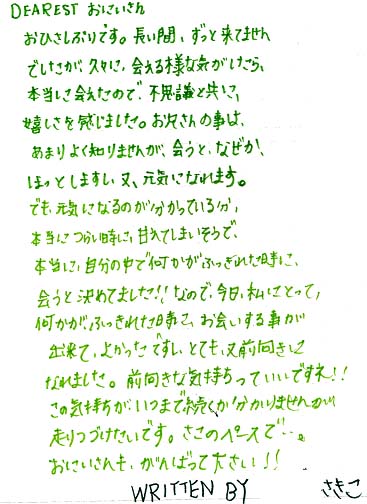 DEAREST おにいさん
おひさしぶりです。長い間、ずっと来てません
でしたが、久々に、会える様な気がしたら、
本当に会えたので、不思議と共に、
嬉しさを感じました。お兄さんの事は、
あまりよく知りませんが、会うと、なぜか、
ほっとしますし、又、元気になれます。
でも、元気になるのが分かっている分、
本当につらい時に、甘えてしまいそうで、
本当に、自分の中で何かがふっきれた時に、
会うと決めてました!!なので、今日、私にとって、
何かが、ふっきれた時に、お会いする事が
出来て、よかったですし、とても、又前向きに
なれました。前向きな気持ちっていいですネ!!
この気持ちが、いつまで続くか分かりませんが
走りつづけたいです。さきこのペースで…。
おにいさんも、がんばって下さい!!
WRITTEN BY さきこ